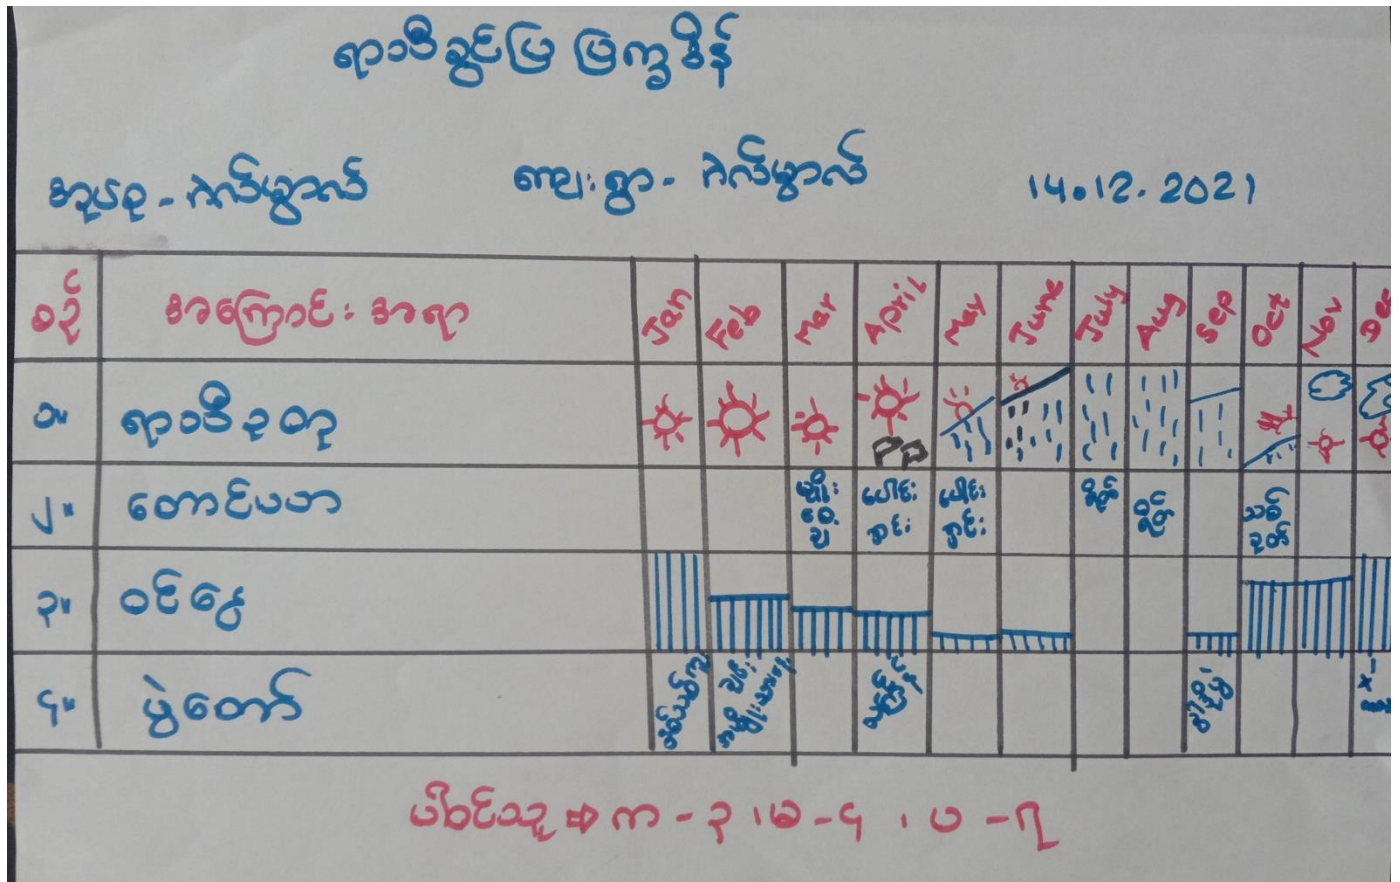 ရာသီခွင်ပြ ပြက္ခဒိန်
အုပ်စု - ဂဲလ်မွှာလ် ကျေးရွာ - ဂဲလ်မွှာလ် 14.12.2021
စဉ် အကြောင်းအရာ Jan Feb Mar April May June July Aug Sep Oct Nov Dec
၁။ ရာသီဥတု
၂။ တောင်ယာ မျိုးစေ့ချ ပေါင်းရှင်း ပေါင်းရှင်း ရိတ် ရိတ် သစ်ခုတ်
၃။ ဝင်ငွေ
၄။ ပွဲတော် နှစ်သစ်ကူး သင်္ကြန်
ပါဝင်သူ ⇒ က - ၃ ၊ မ - ၄ ၊ ပ - ၇